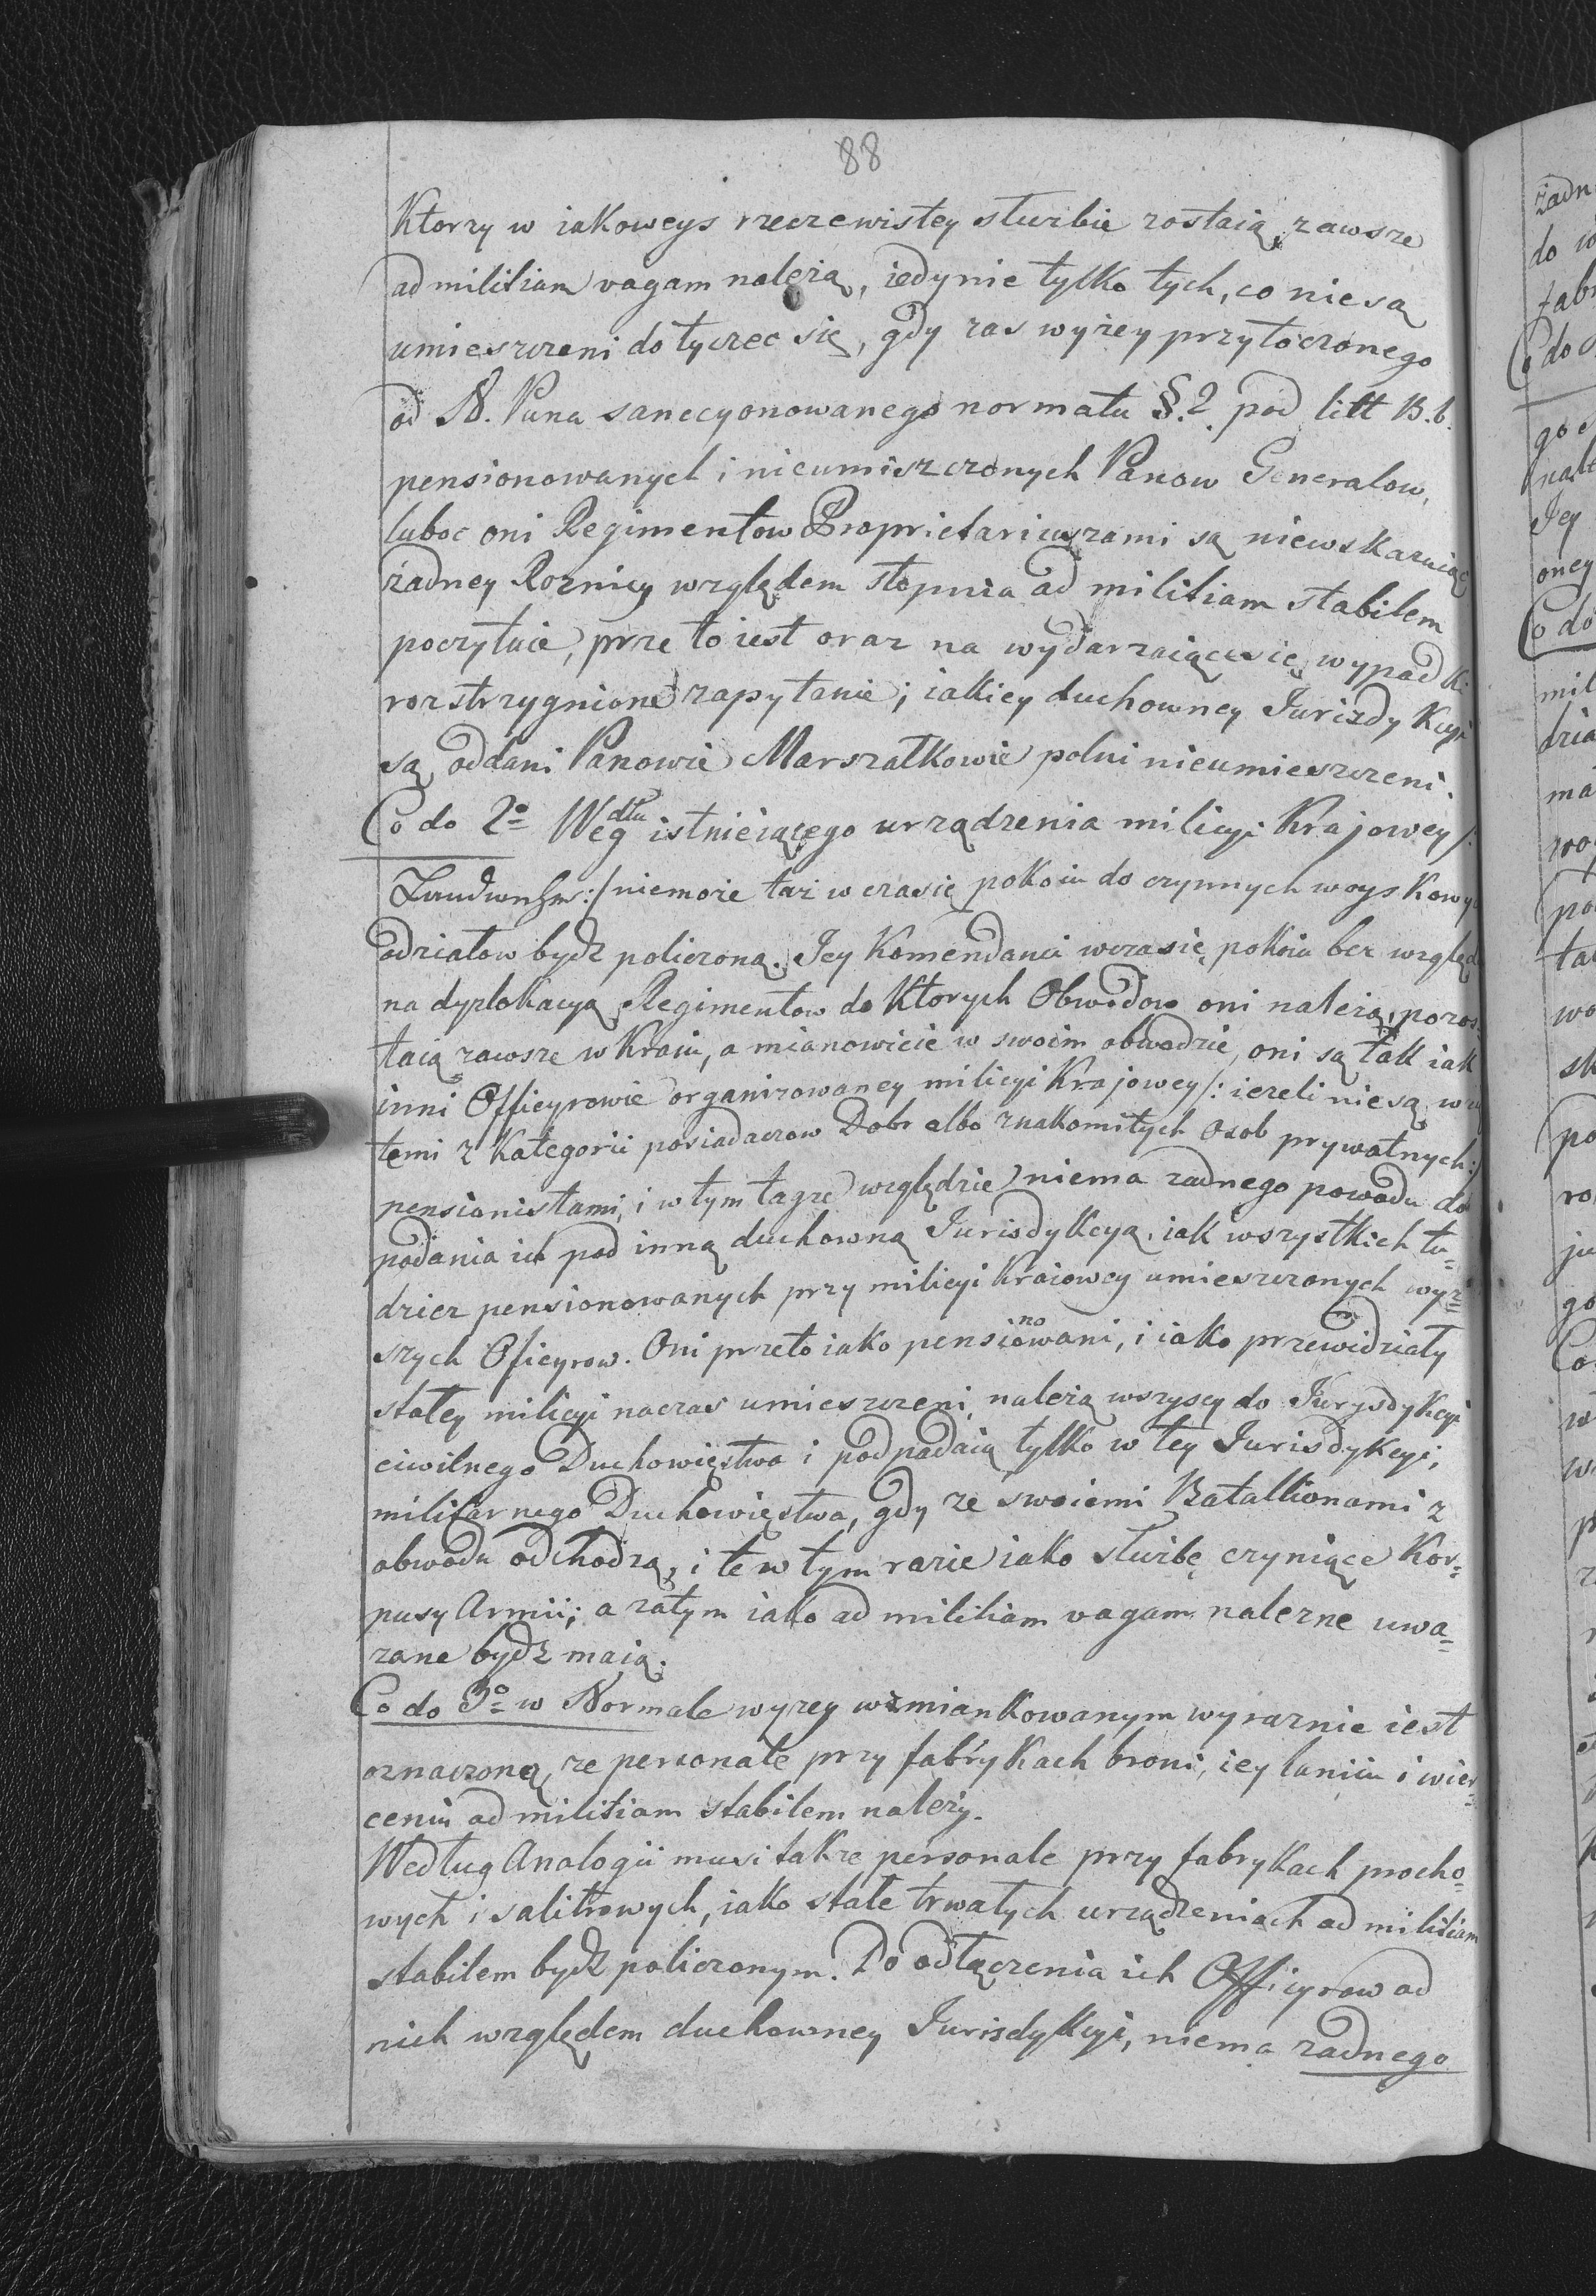 88
Ktorzy w iakoweys rzeczewistey służbie zostaią, zawsze
ad militiam vagam należą, iedynie tylko tych, co nie są
umieszczeni dotyczec się, gdy zas wyżey przytoczonego
od N. Pana sancyonowanego normatu §. 2. pod litt B. b.
pensionowanych i nieumiszczonych Panow Generalow,
luboc oni Regimentow Proprietariuszami są niewskazuiąc
żadney Roznicy względem stopnia ad militiam stabilem
poczytuie, prze to iest oraz na wydarzaiące się wypadki
rozstrzygnione zapytanie; iakiey duchowney Jurizdykcyi
są oddani Panowie Marszałkowie polni nieumieszczeni.
Co do 2o Wegdłu istnieiącego urządzenia milicyi Krajowey /:
Landwehr :/ niemoże taż w czasie pokoiu do czynnych woyskowy
odziałow bydź policzona. Jey Komendanci w czasie pokoiu bez względ
na dyzlokacyą Regimentow do Ktorych Obwodow oni należą, pozos
taią zawsze w Kraiu, a mianowicie w swoim obwodzie, oni są tak iak
inni Officyrowie organizowaney milicyi Krajowey /: iezeli nie są wzię
temi z Kategorii posiadaczow Dobr albo znakomitych osob prywatnych :/
pensionistami, i w tym tagże względzie niema zadnego powodu do
podania ich pod inną duchowną Jurisdykcyą, iak wszystkich tu-
dziez pensionowanych przy milicyi Kraiowey umieszczonych wyż-
szych Oficyrow. Oni przeto iako pensionowani, i iako przewidziały
stałey milicyi naczas umieszczeni należą wszyscy do Jurysdykcyi
ciwilnego Duchowięstwa i podpadaią tylko w tey Jurisdykcyi;
militarnego Duchowięstwa, gdy ze swoiemi Batallionami z
obwodu odchodzą, i te w tym razie iako służbę czyniące Kor=
pusy Armii; a zatym iako ad militiam vagam nalezne uwa=
zane bydź maią.
Co do 3o w Normale wyzey wzmiankowanym wyraznie iest
oznaczoną, ze personale przy fabrykach broni, iey laniu i wier=
ceniu ad militiam stabilem należy.
Według Analogii musi takze personale przy fabrykach procho=
wych i salitrowych, iako stałe trwałych urządzeniach ad militiam
stabilem bydź policzonym. Do odłączenia ich Officyrow od
nich względem duchowney Jurisdykcyi, niema zadnego